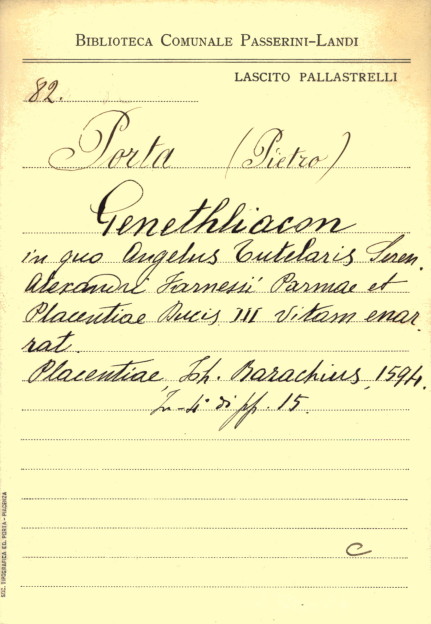 BIBLIOTECA COMUNALE PASSERINI-LANDI
LASCITO PALLASTRELLI
82.
Porta (Pietro)
Genethliacon
in quo Angelus Tutelaris Seren.
Alexandri Farnesii Parmae et
Placentiae Ducis III vitam enar
rat.
Placentiae, Joh. Barachius, 1594.
In-4° di pp. 15.
C
SOC. TIPOGRAFICA ED. PORTA - PIACENZA